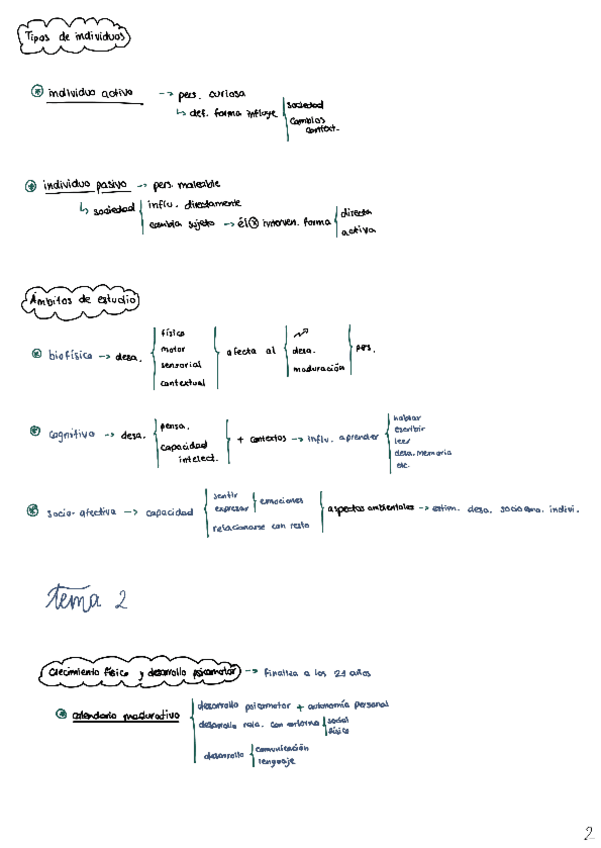 Tipos de individuos
individuo activo --> pers. curiosa
↳ def. forma influye sociedad
cambios
context.
individuo pasivo -> pers. maleable
↳ sociedad influ. directamente
cambia sujeto -> él ⊗ interven. forma directa
activa
Ámbitos de estudio
biofísico -> desa. físico
motor
sensorial
contextual
afecta al desa.
maduración
pers.
cognitivo -> desa. pensa.
capacidad
intelect.
+ contextos -> influ. aprender hablar
escribir
leer
desa. memoria
etc.
socio-afectivo -> capacidad sentir
expresar
emociones
relacionarse con resto
aspectos ambientales -> estim. desa. socioemo. indivi.
Tema 2
Crecimiento físico y desarrollo psicomotor -> finaliza a los 21 años
calendario madurativo desarrollo psicomotor + autonomía personal
desarrollo rela. con entorno social
físico
desarrollo comunicación
lenguaje
2